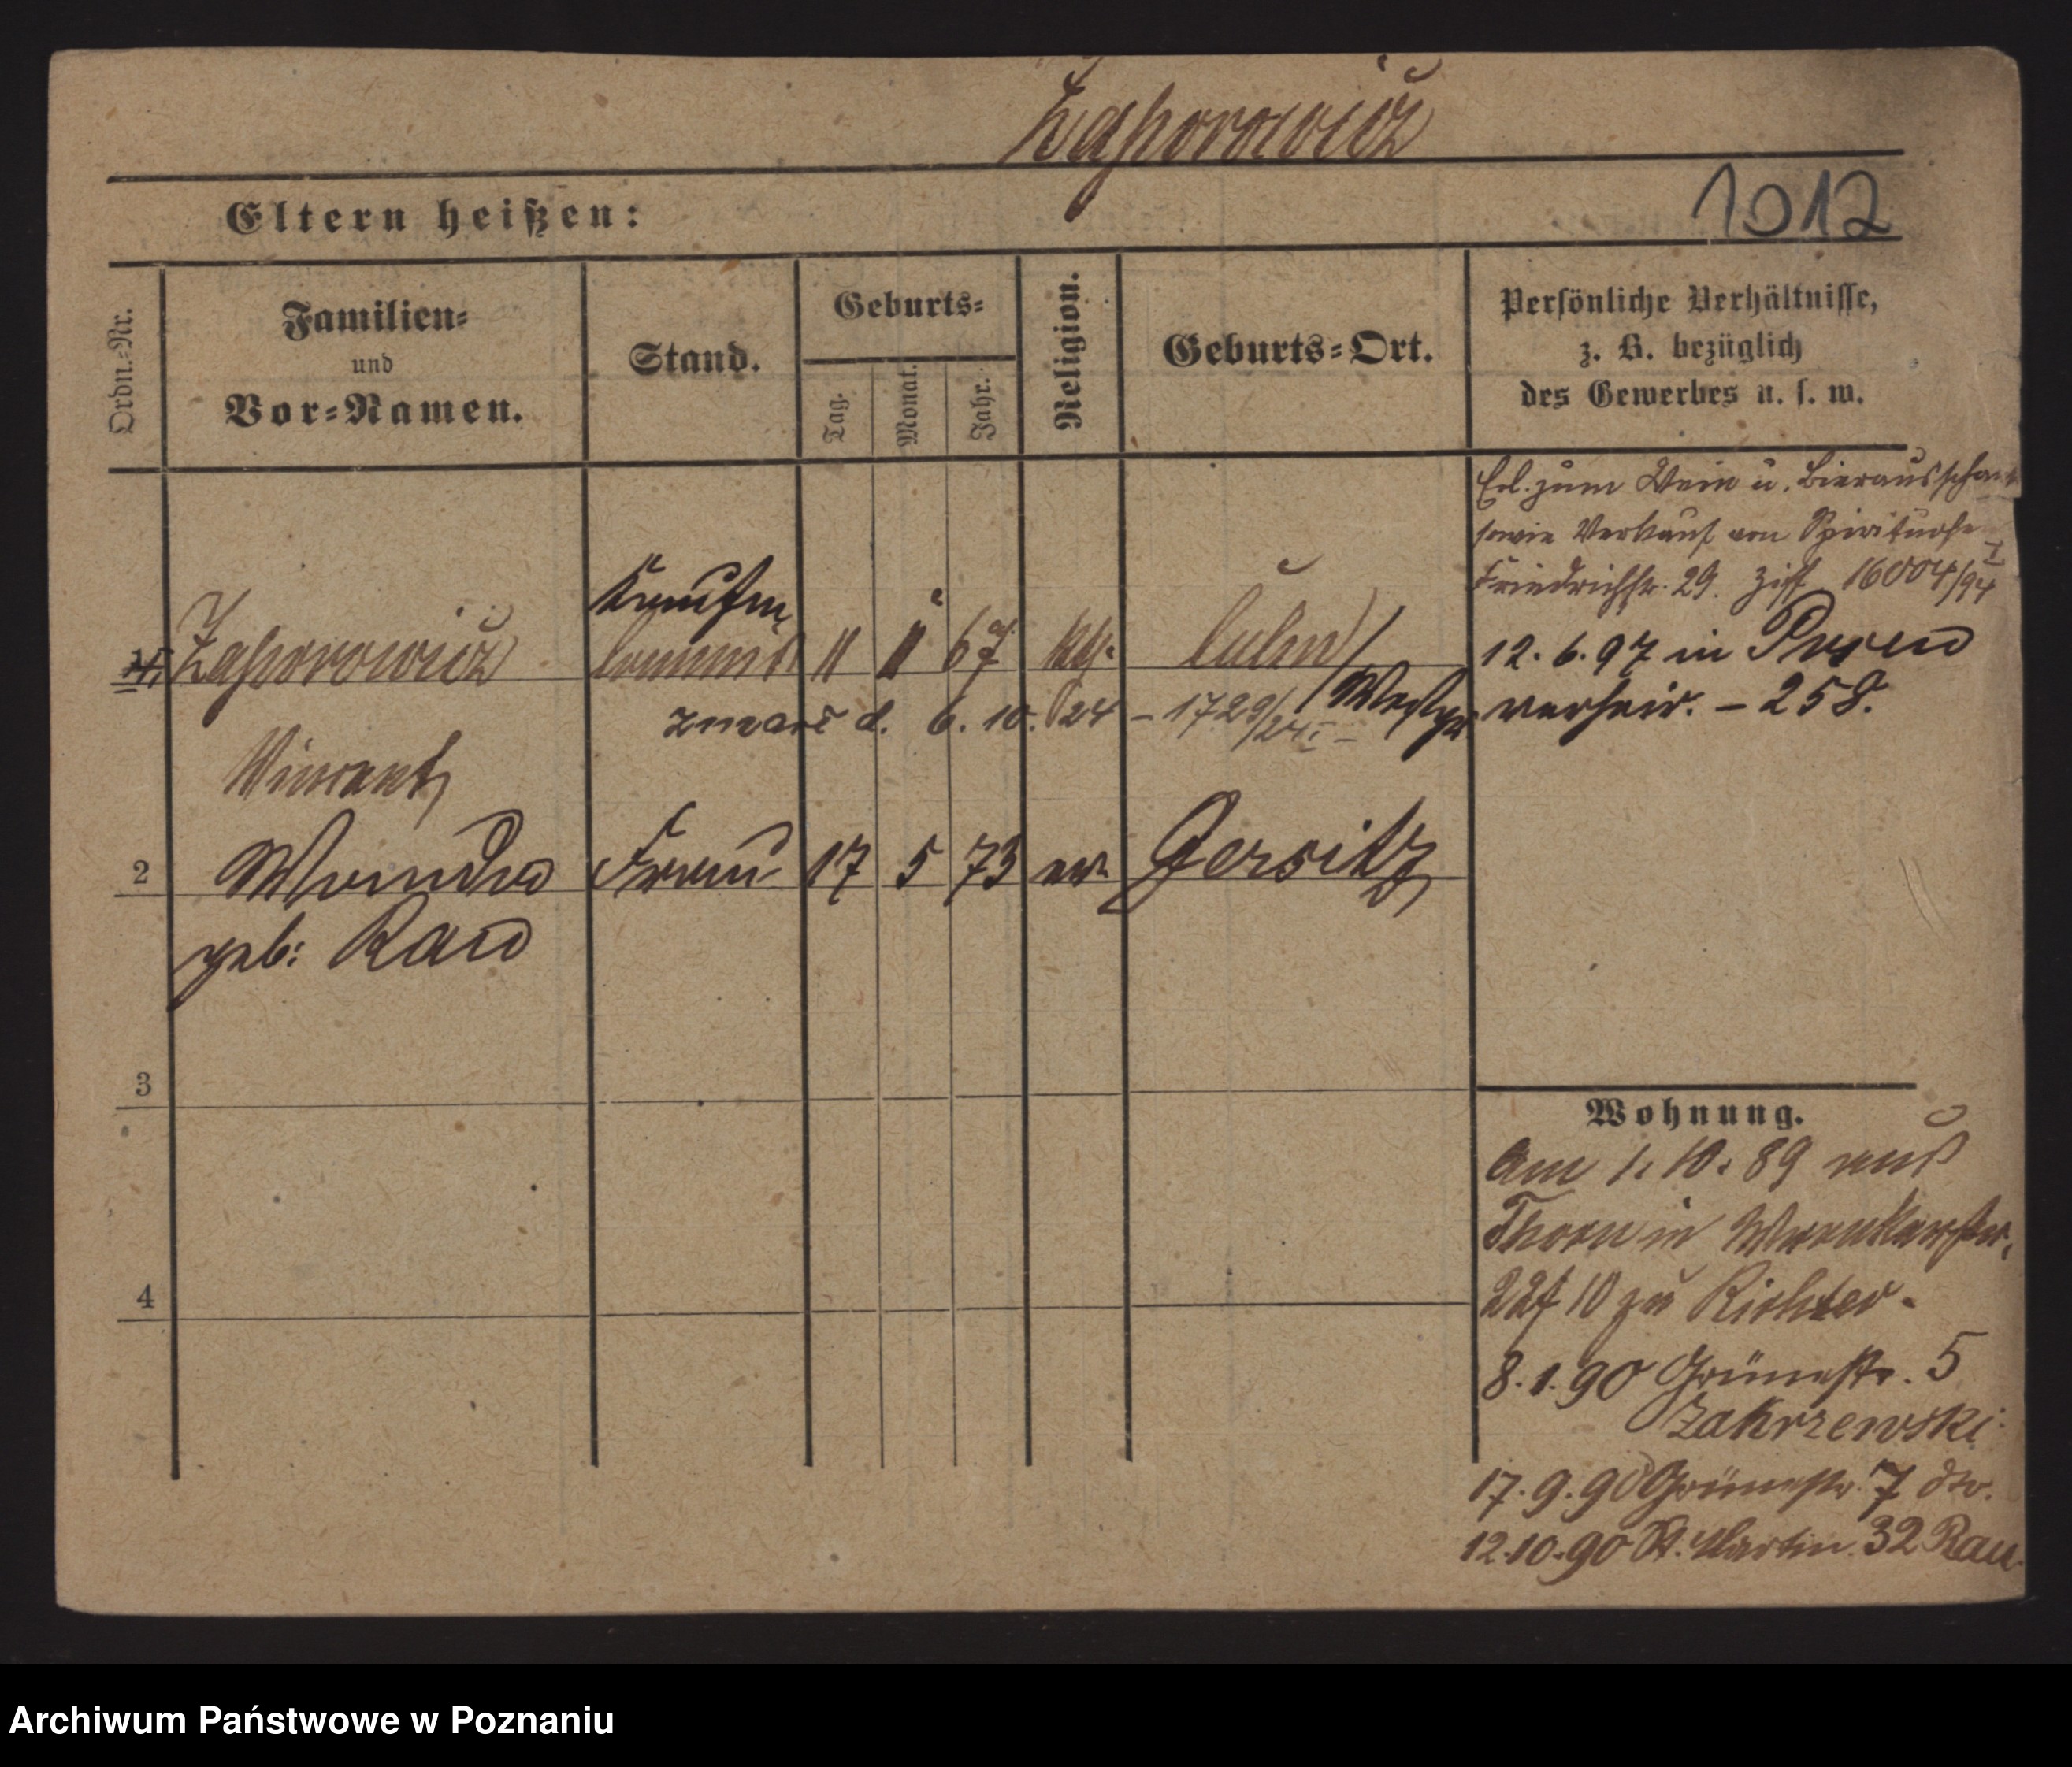 Zaporowicz
Eltern heißen:
1012
Ordn.-Nr.
Familien-
und
Vor-Namen.
Stand.
Geburts-
Tag.
Monat.
Jahr.
Religion.
Geburts-Ort.
Persönliche Verhältnisse,
z. B. bezüglich
des Gewerbes u. s. w.
Erl. zum Wein u. Bierausschank
sowie Verkauf von
Friedrichstr. 29. 16004/94
Kaufm.
Zaporowicz 11 67 Culm
12.6.97 in Posen
d. 6. 10. 24 - 1729/24 Westpr
verheir. - 258.
Vincent
2 Wanda Frau 17 5 73 ev. Gersitz
geb: Rau
3
4
Wohnung.
Am 1. 10. 89 aus
Thorn in
10 zu Richter.
8.1.90 Grünestr. 5
Zakrzewski
17.9.90 Grünestr. 7 dto.
12.10.90 St. Martin 32 Rau
Archiwum Państwowe w Poznaniu